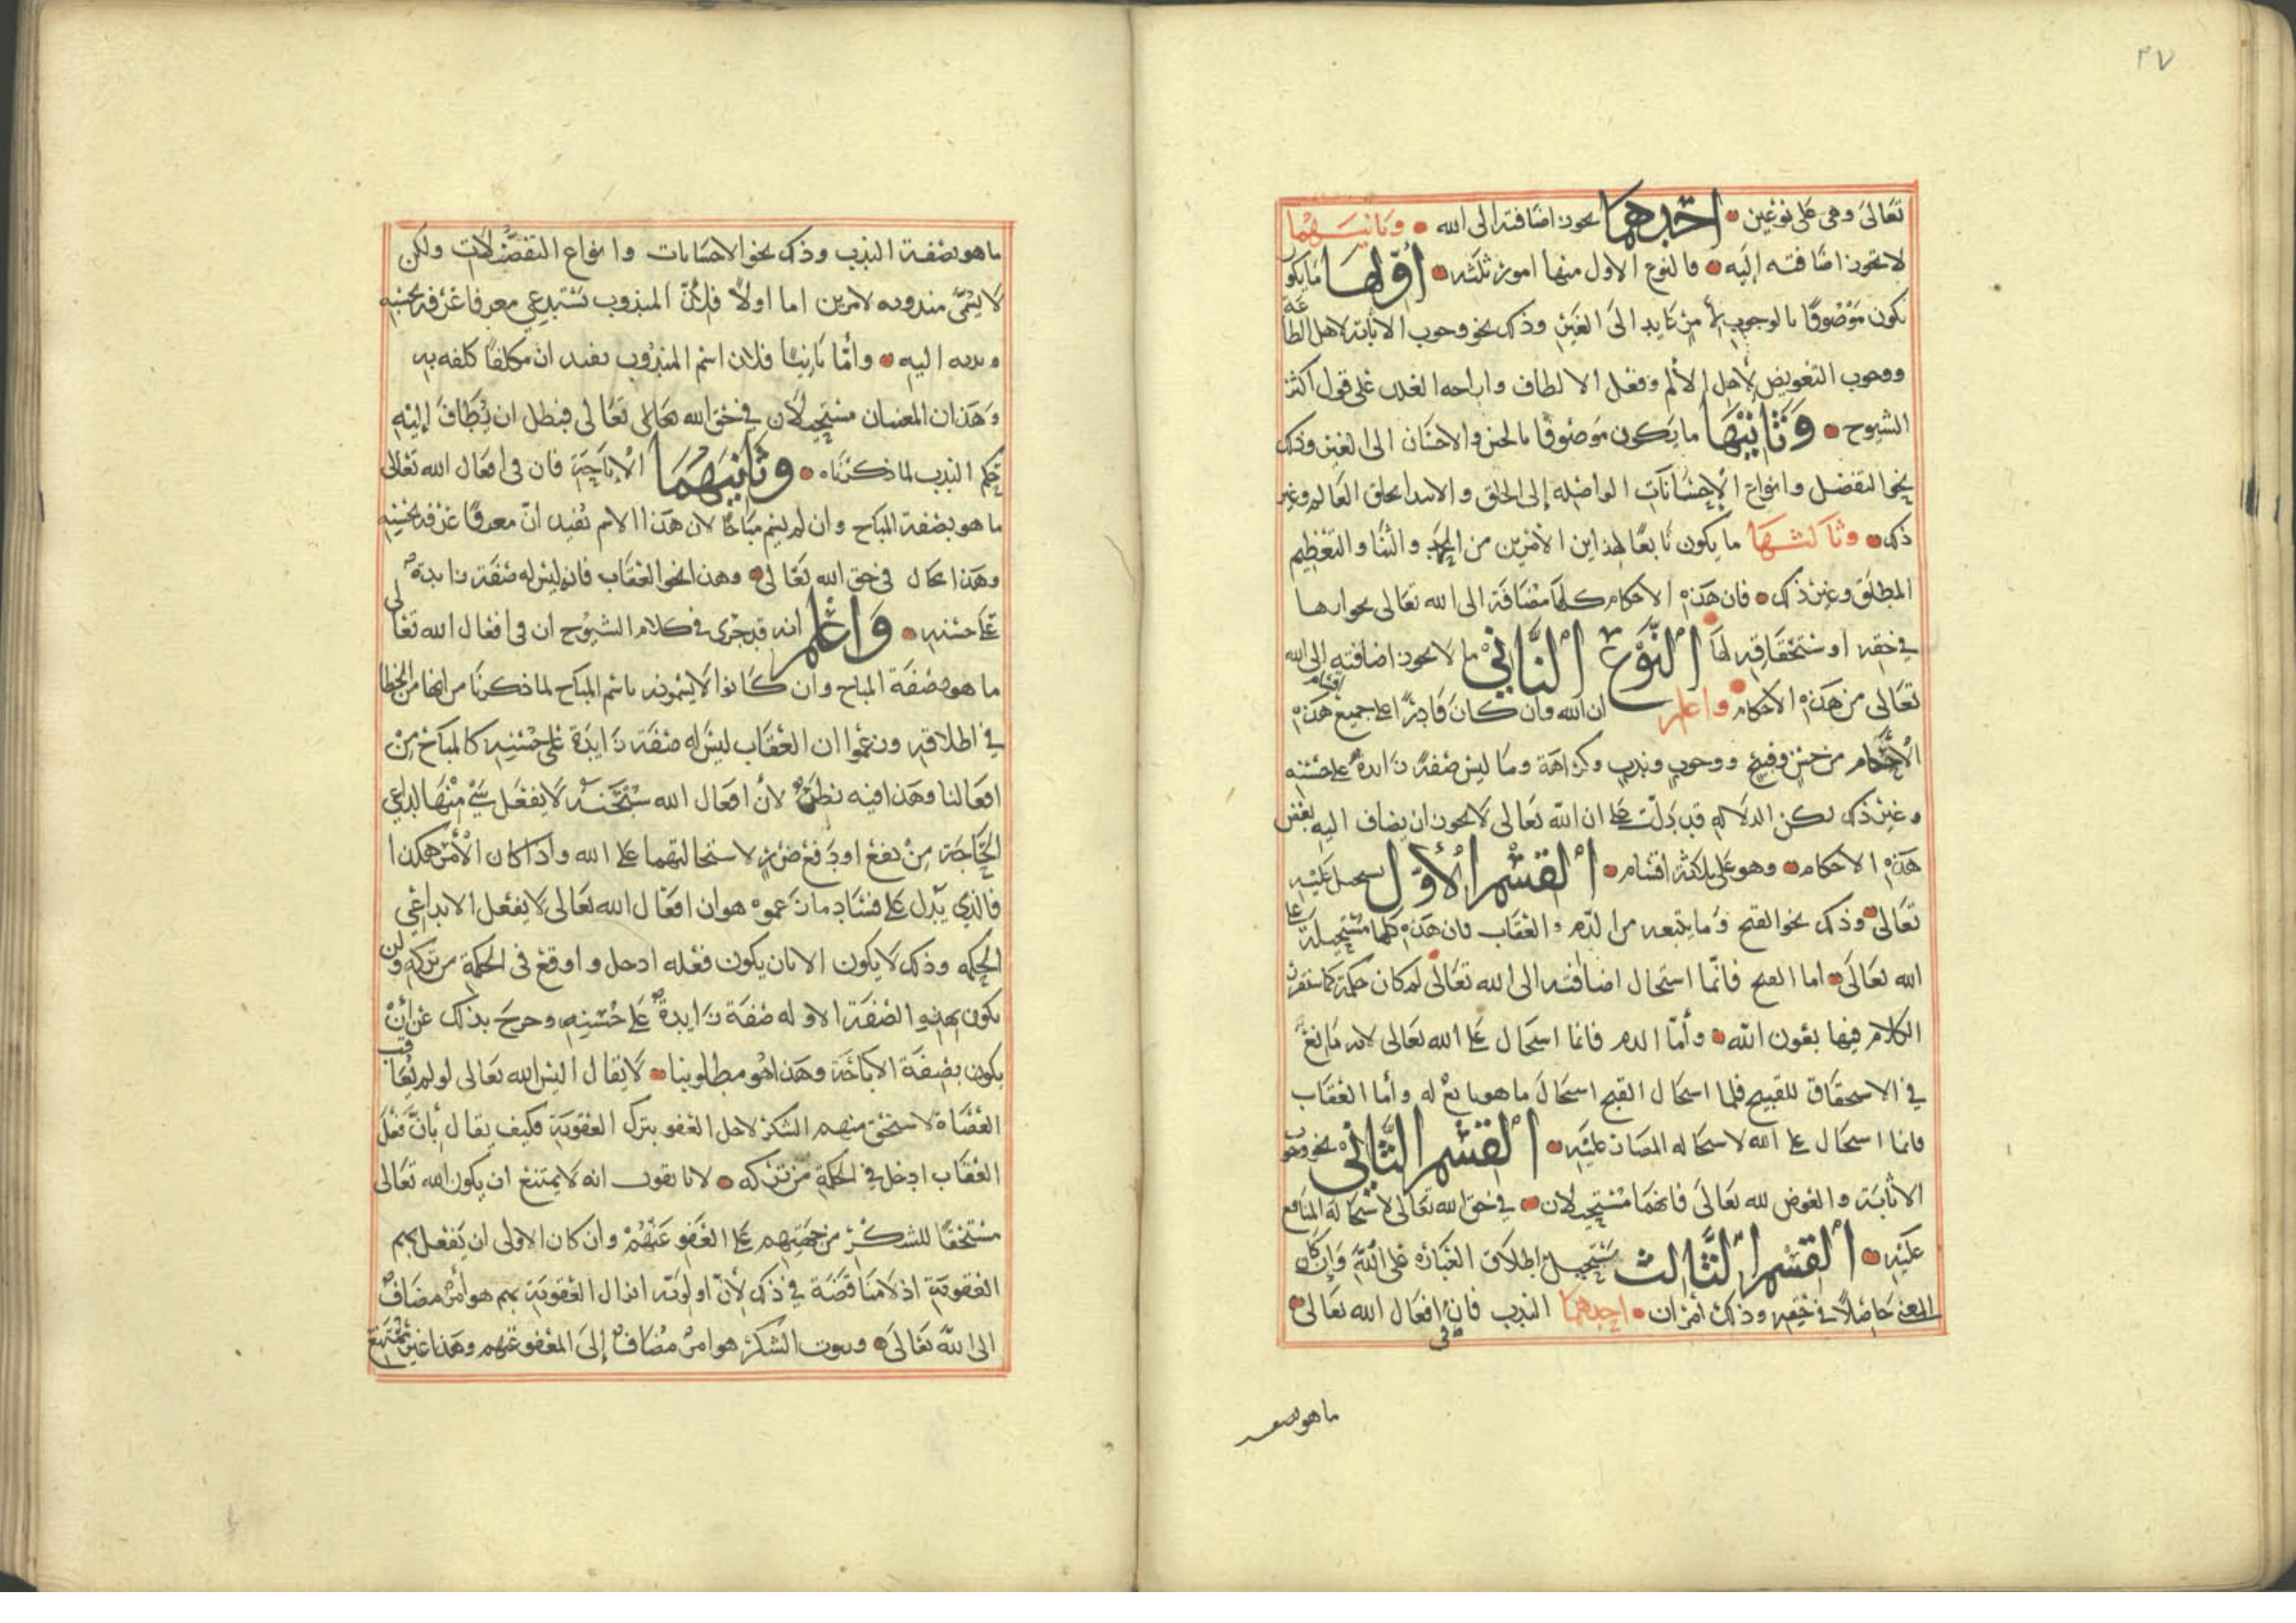 ٢٧
تعالى وهي على نوعين احدهما يجوز اضافته الى الله وثانيهما
لا يجوز اضافته إليه فالنوع الاول منها امور ثلثه أولها ما يكون
يكون موصوفا بالوجوب لأمر عايد الى الغير وذلك نحو وجوب الاثابة لاهل الطاعة
ووجوب التعويض لأجل الألم وفعل الالطاف وازاحه العلل على قول اكثر
الشيوخ وثانيها ما يكون موصوفا بالحسن والاحسان الى الغير وذلك
نحو التفضل وانواع الإحسانات الواصله إلى الخلق والابتدا بخلق العالم وغير
ذلك وثالثها ما يكون تابعا لهذين الأمرين من الحمد والثنا والتعظيم
المطلق وغير ذلك فان هذه الأحكام كلها مضافة الى الله تعالى بجوازها
في حقه او استحقاقه لها النوع الثاني ما لا يجوز اضافته إلى الله
تعالى من هذه الأحكام واعلم ان الله وان كان قادرا على جميع اقسام هذه
الأحكام من حسن وقبيح ووجوب وندب وكراهة وما ليس صفة زايدة على حسنه
وغير ذلك لكن الدلاله قد دلت على ان الله تعالى لا يجوز ان يضاف اليه بعض
هذه الاحكام وهو على ثلاثة اقسام القسم الأول يستحيل عليه
تعالى وذلك نحو القبح وما يتبعه من الذم والعقاب فان هذه كلها مستحيلة على
الله تعالى اما القبح فانما استحال اضافته الى الله تعالى لمكان حكمته كما سنقرر
الكلام فيها بعون الله وأما الذم فانما استحال على الله تعالى لانه تابع
في الاستحقاق للقبيح فلما استحال القبح استحال ما هو تابع له وأما العقاب
فانما استحال على الله لاستحاله المضار عليه القسم الثاني نحو وجوب
الاثابة والعوض لله تعالى فانهما مستحيلان في حق الله تعالى لاستحالة المنافع
عليه القسم الثالث يستحيل اطلاق العبارة على الله وإن كان
المعنى حاصلا في حقه وذلك أمران احدهما الندب فان في افعال الله تعالى
ما هو بصفة
ما هو بصفة الندب وذلك نحو الاحسانات وانواع التفضلات ولكن
لا يسمى مندوبه لامرين اما اولا فلأن المندوب يستدعي معرفا عرفه بحسنه
وندبه اليه وأما ثانيا فلان اسم المندوب يفيد ان مكلفا كلفه به
وهذان المعنيان مستحيلان في حق الله تعالى تعالى فبطل ان يضاف إليه
حكم الندب لما ذكرناه وثانيهما الإباحة فان في افعال الله تعالى
ما هو بصفة المباح وان لم يسم مباحا لان هذا الاسم يفيد ان معرفا عرفه بحسنه
وهذا محال في حق الله تعالى وهذا نحو العقاب فانه ليس له صفة زايدة
على حسنه واعلم انه قد جرى في كلام الشيوخ ان في افعال الله تعالى
ما هو بصفة المباح وان كانوا لا يسمونه باسم المباح لما ذكرنا من ايهام الخطا
في اطلاقه وزعموا ان العقاب ليس له صفة زايدة على حسنه كالمباح من
افعالنا وهذا فيه نظر لأن افعال الله سبحنه لا يفعل شي منها لداعي
الحاجة من نفع او دفع ضرر لاستحالتهما على الله واذا كان الأمر هكذا
فالذي يدل على فساد ما زعموه هو ان افعال الله تعالى لا يفعل الا بداعي
الحكمه وذلك لا يكون الا بان يكون فعله ادخل واوقع في الحكمة من تركه ولن
يكون بهذه الصفة الا وله صفة زايدة على حسنه وخرج بذلك عن أن
يكون بصفة الاباحة وهذا هو مطلوبنا لا يقال اليس الله تعالى لو لم يعاقب
العصاة لاستحق منهم الشكر لاجل العفو بترك العقوبة فكيف يقال بأن فعل
العقاب ادخل في الحكمة من تركه لانا نقول انه لا يمتنع ان يكون الله تعالى
مستحقا للشكر من جهتهم على العفو عنهم وان كان الاولى ان يفعل بهم
العقوبة اذ لا مناقضة في ذلك لأن اولوية انزال العقوبة بهم هو أمر مضاف
الى الله تعالى وثبوت الشكر هو امر مضاف إلى المعفو عنهم وهذا غير ممتنع